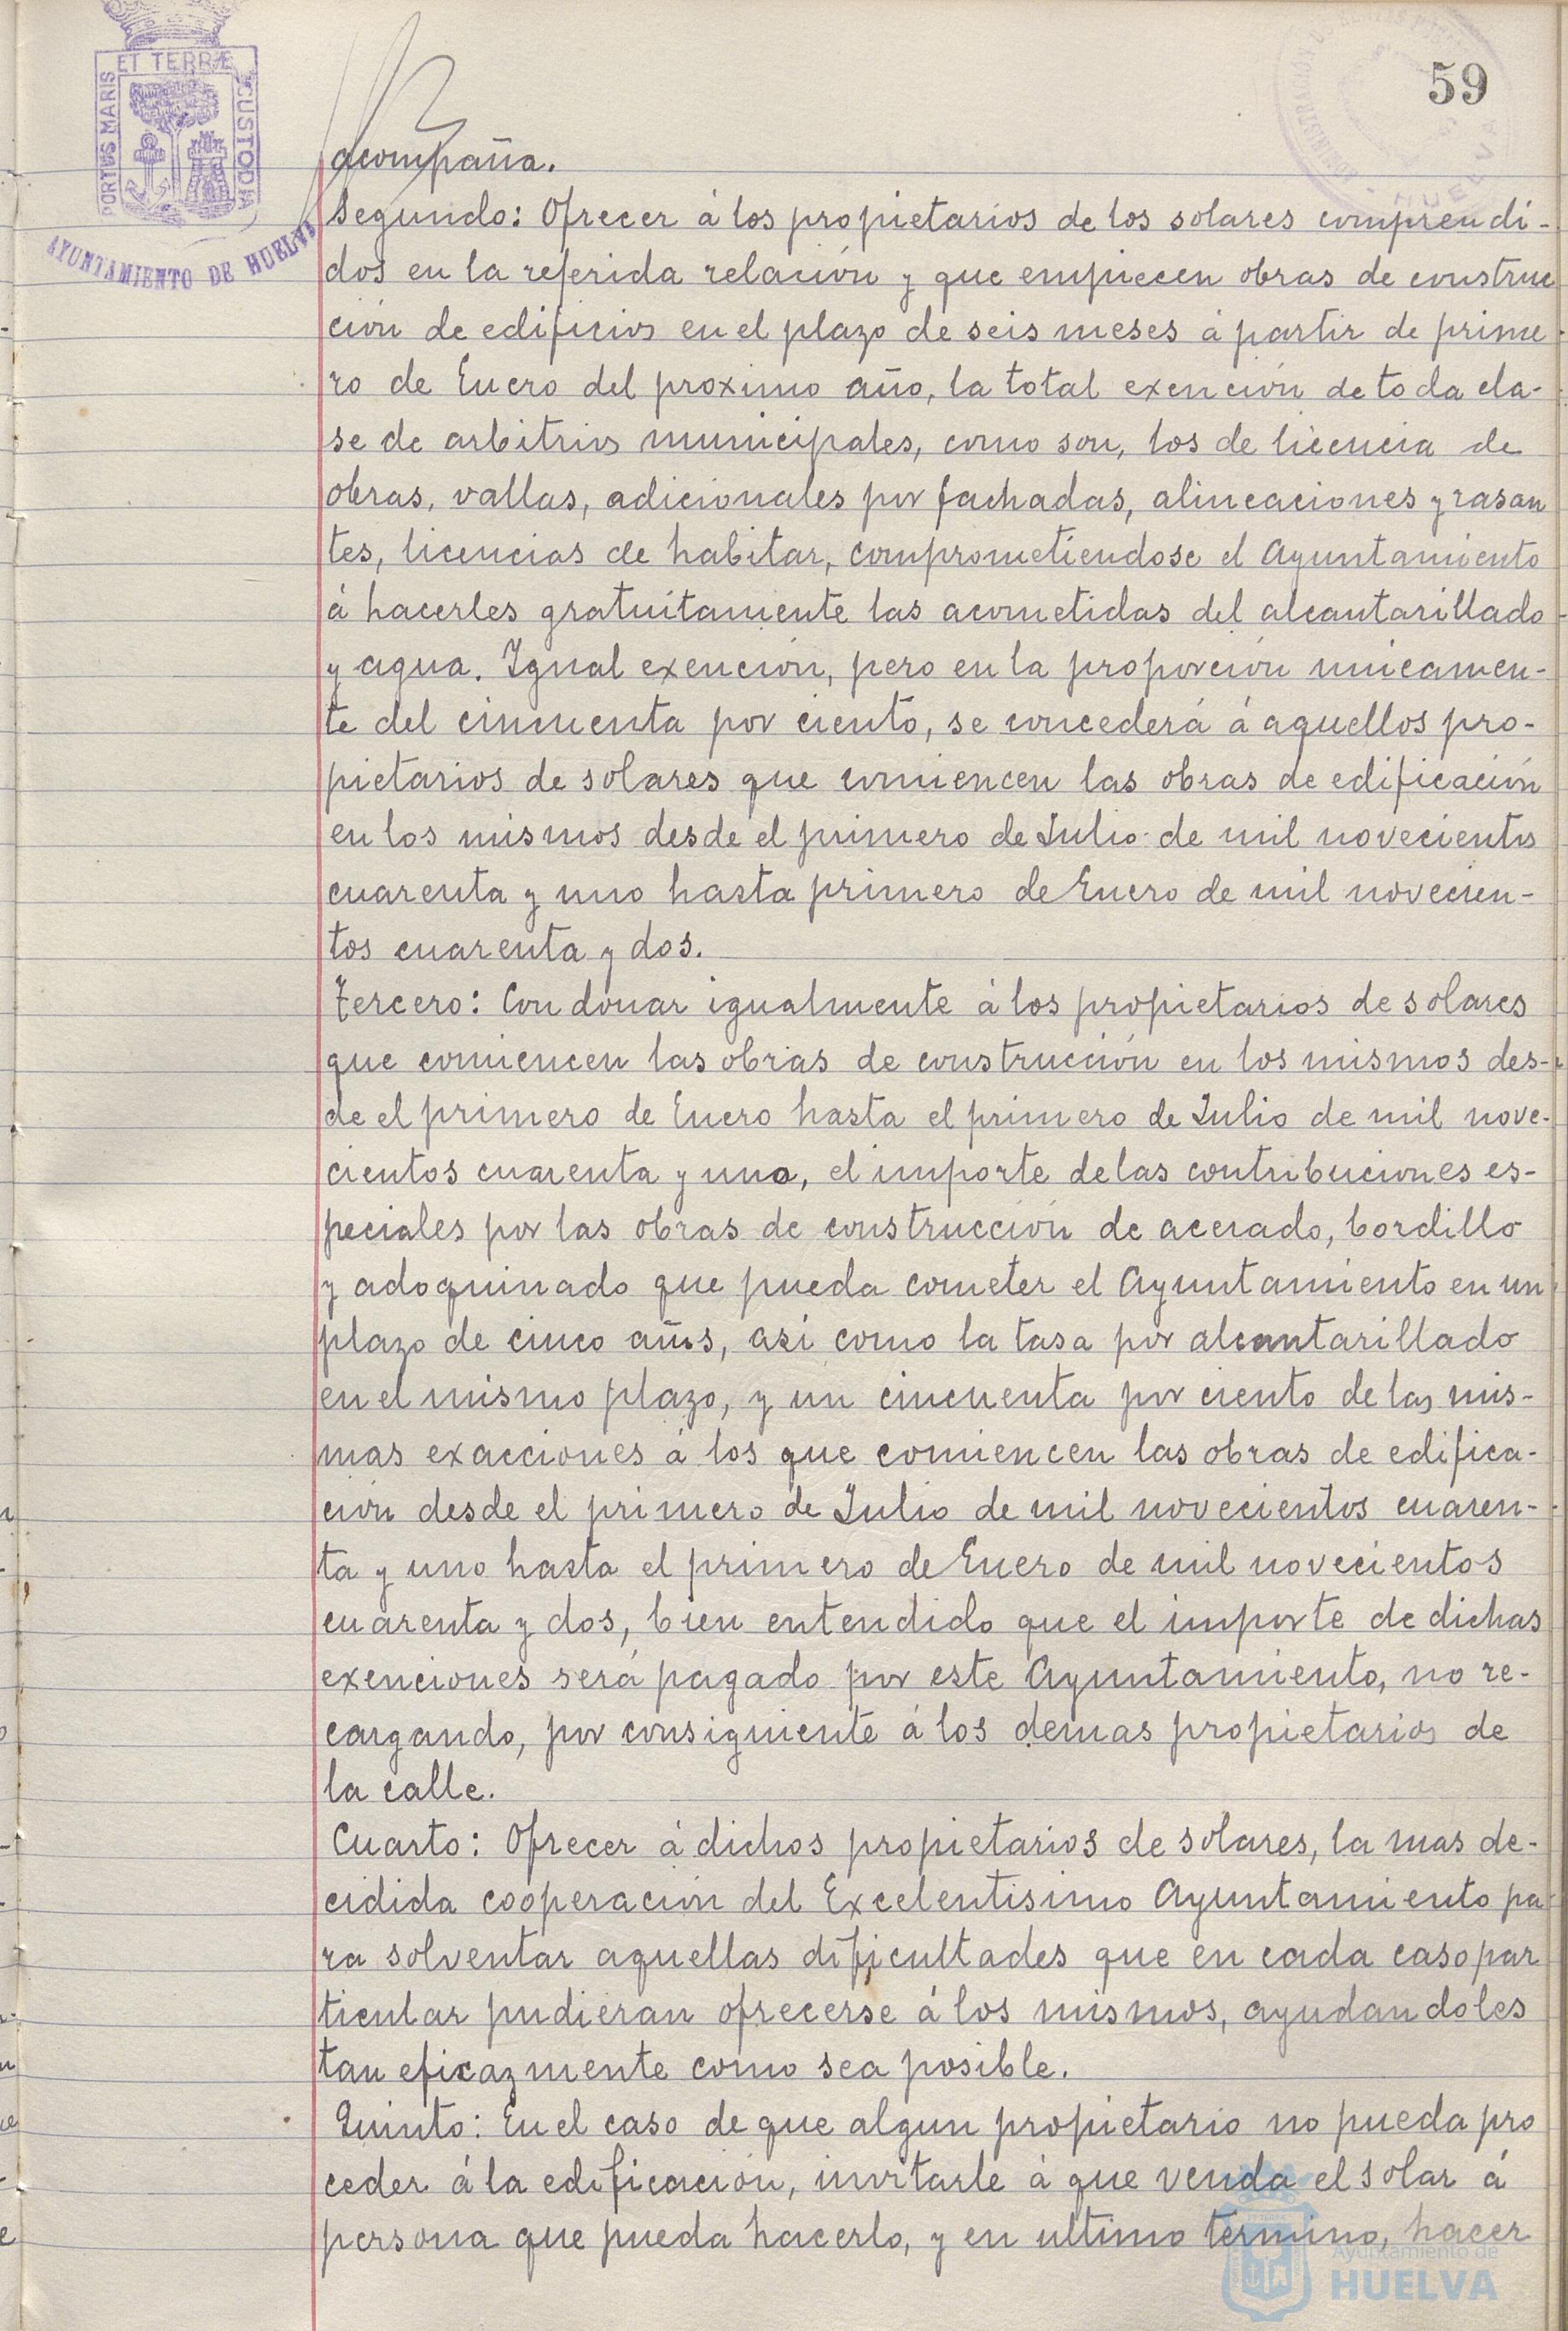 59
PORTUS MARIS ET TERRÆ CUSTODIA
AYUNTAMIENTO DE HUELVA
acompaña.
Segundo: Ofrecer á los propietarios de los solares comprendi-
dos en la referida relación y que empiecen obras de construc
ción de edificios en el plazo de seis meses á partir de prime
ro de Enero del proximo año, la total exención de toda cla-
se de arbitrios municipales, como son, los de licencia de
obras, vallas, adicionales por fachadas, alineaciones y rasan
tes, licencias de habitar, comprometiendose el Ayuntamiento
á hacerles gratuitamente las acometidas del alcantarillado
y agua. Igual exención, pero en la proporción unicamen-
te del cincuenta por ciento, se concederá á aquellos pro-
pietarios de solares que comiencen las obras de edificación
en los mismos desde el primero de Julio de mil novecientos
cuarenta y uno hasta primero de Enero de mil novecien-
tos cuarenta y dos.
Tercero: Condonar igualmente á los propietarios de solares
que comiencen las obras de construcción en los mismos des-
de el primero de Enero hasta el primero de Julio de mil nove-
cientos cuarenta y uno, el importe de las contribuciones es-
peciales por las obras de construcción de acerado, bordillo
y adoquinado que pueda cometer el Ayuntamiento en un
plazo de cinco años, asi como la tasa por alcantarillado
en el mismo plazo, y un cincuenta por ciento de las mis-
mas exacciones á los que comiencen las obras de edifica-
ción desde el primero de Julio de mil novecientos cuaren-
ta y uno hasta el primero de Enero de mil novecientos
cuarenta y dos, bien entendido que el importe de dichas
exenciones será pagado por este Ayuntamiento, no re-
cargando, por consiguiente á los demas propietarios de
la calle.
Cuarto: Ofrecer á dichos propietarios de solares, la mas de-
cidida cooperación del Excelentisimo Ayuntamiento pa
ra solventar aquellas dificultades que en cada caso par
ticular pudieran ofrecerse á los mismos, ayudandoles
tan eficazmente como sea posible.
Quinto: En el caso de que algun propietario no pueda pro
ceder á la edificación, invitarle á que venda el solar á
persona que pueda hacerlo, y en ultimo termino, hacer
Ayuntamiento de
HUELVA